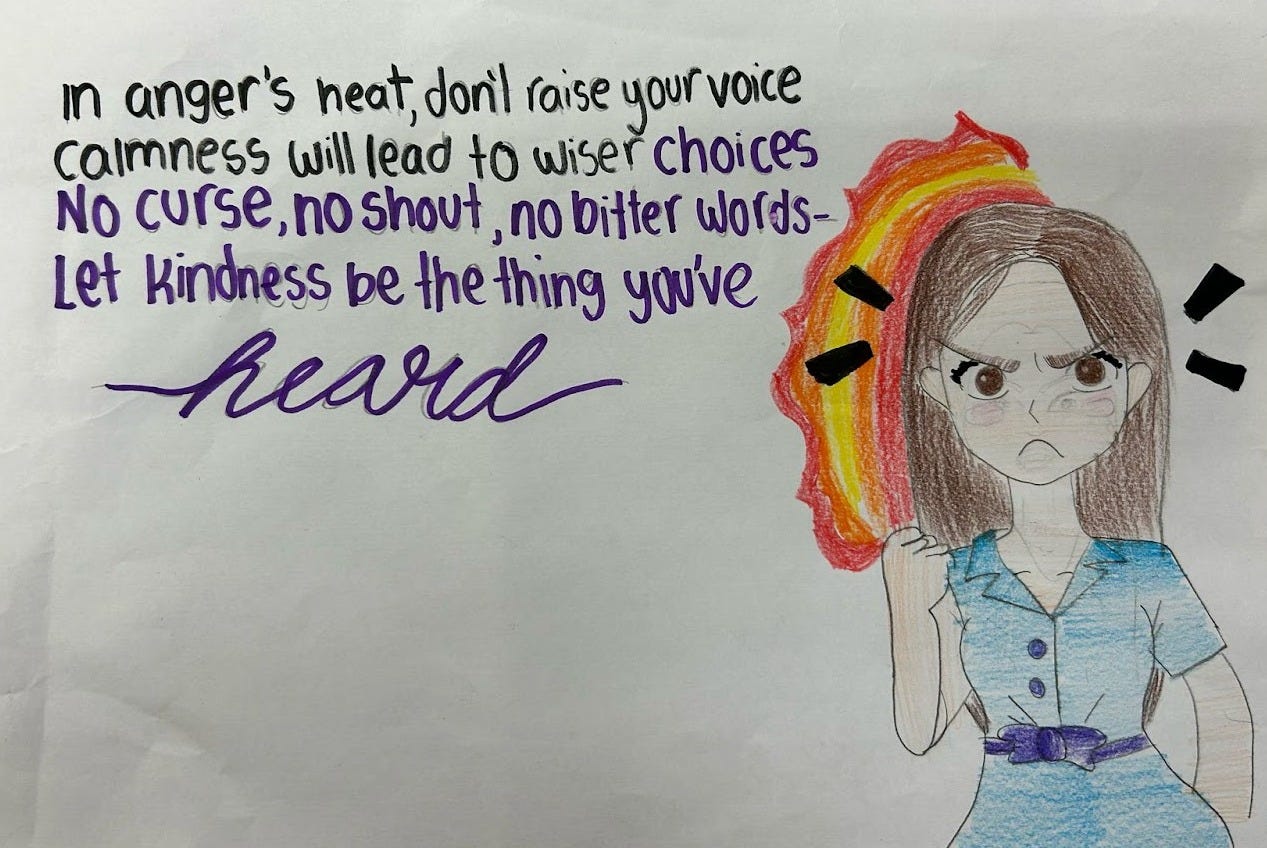 In anger's heat, don't raise your voice
calmness will lead to wiser choices
No curse, no shout, no bitter words-
Let kindness be the thing you've
heard